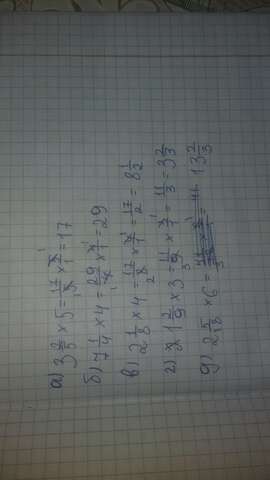 а) 3 2/5 × 5 = 17/5 × 5/1 = 17
б) 7 1/4 × 4 = 29/4 × 4/1 = 29
в) 2 1/8 × 4 = 17/8 × 4/1 = 17/2 = 8 1/2
г) 1 2/9 × 3 = 11/9 × 3/1 = 11/3 = 3 2/3
д) 2 5/18 × 6 = 13 2/3